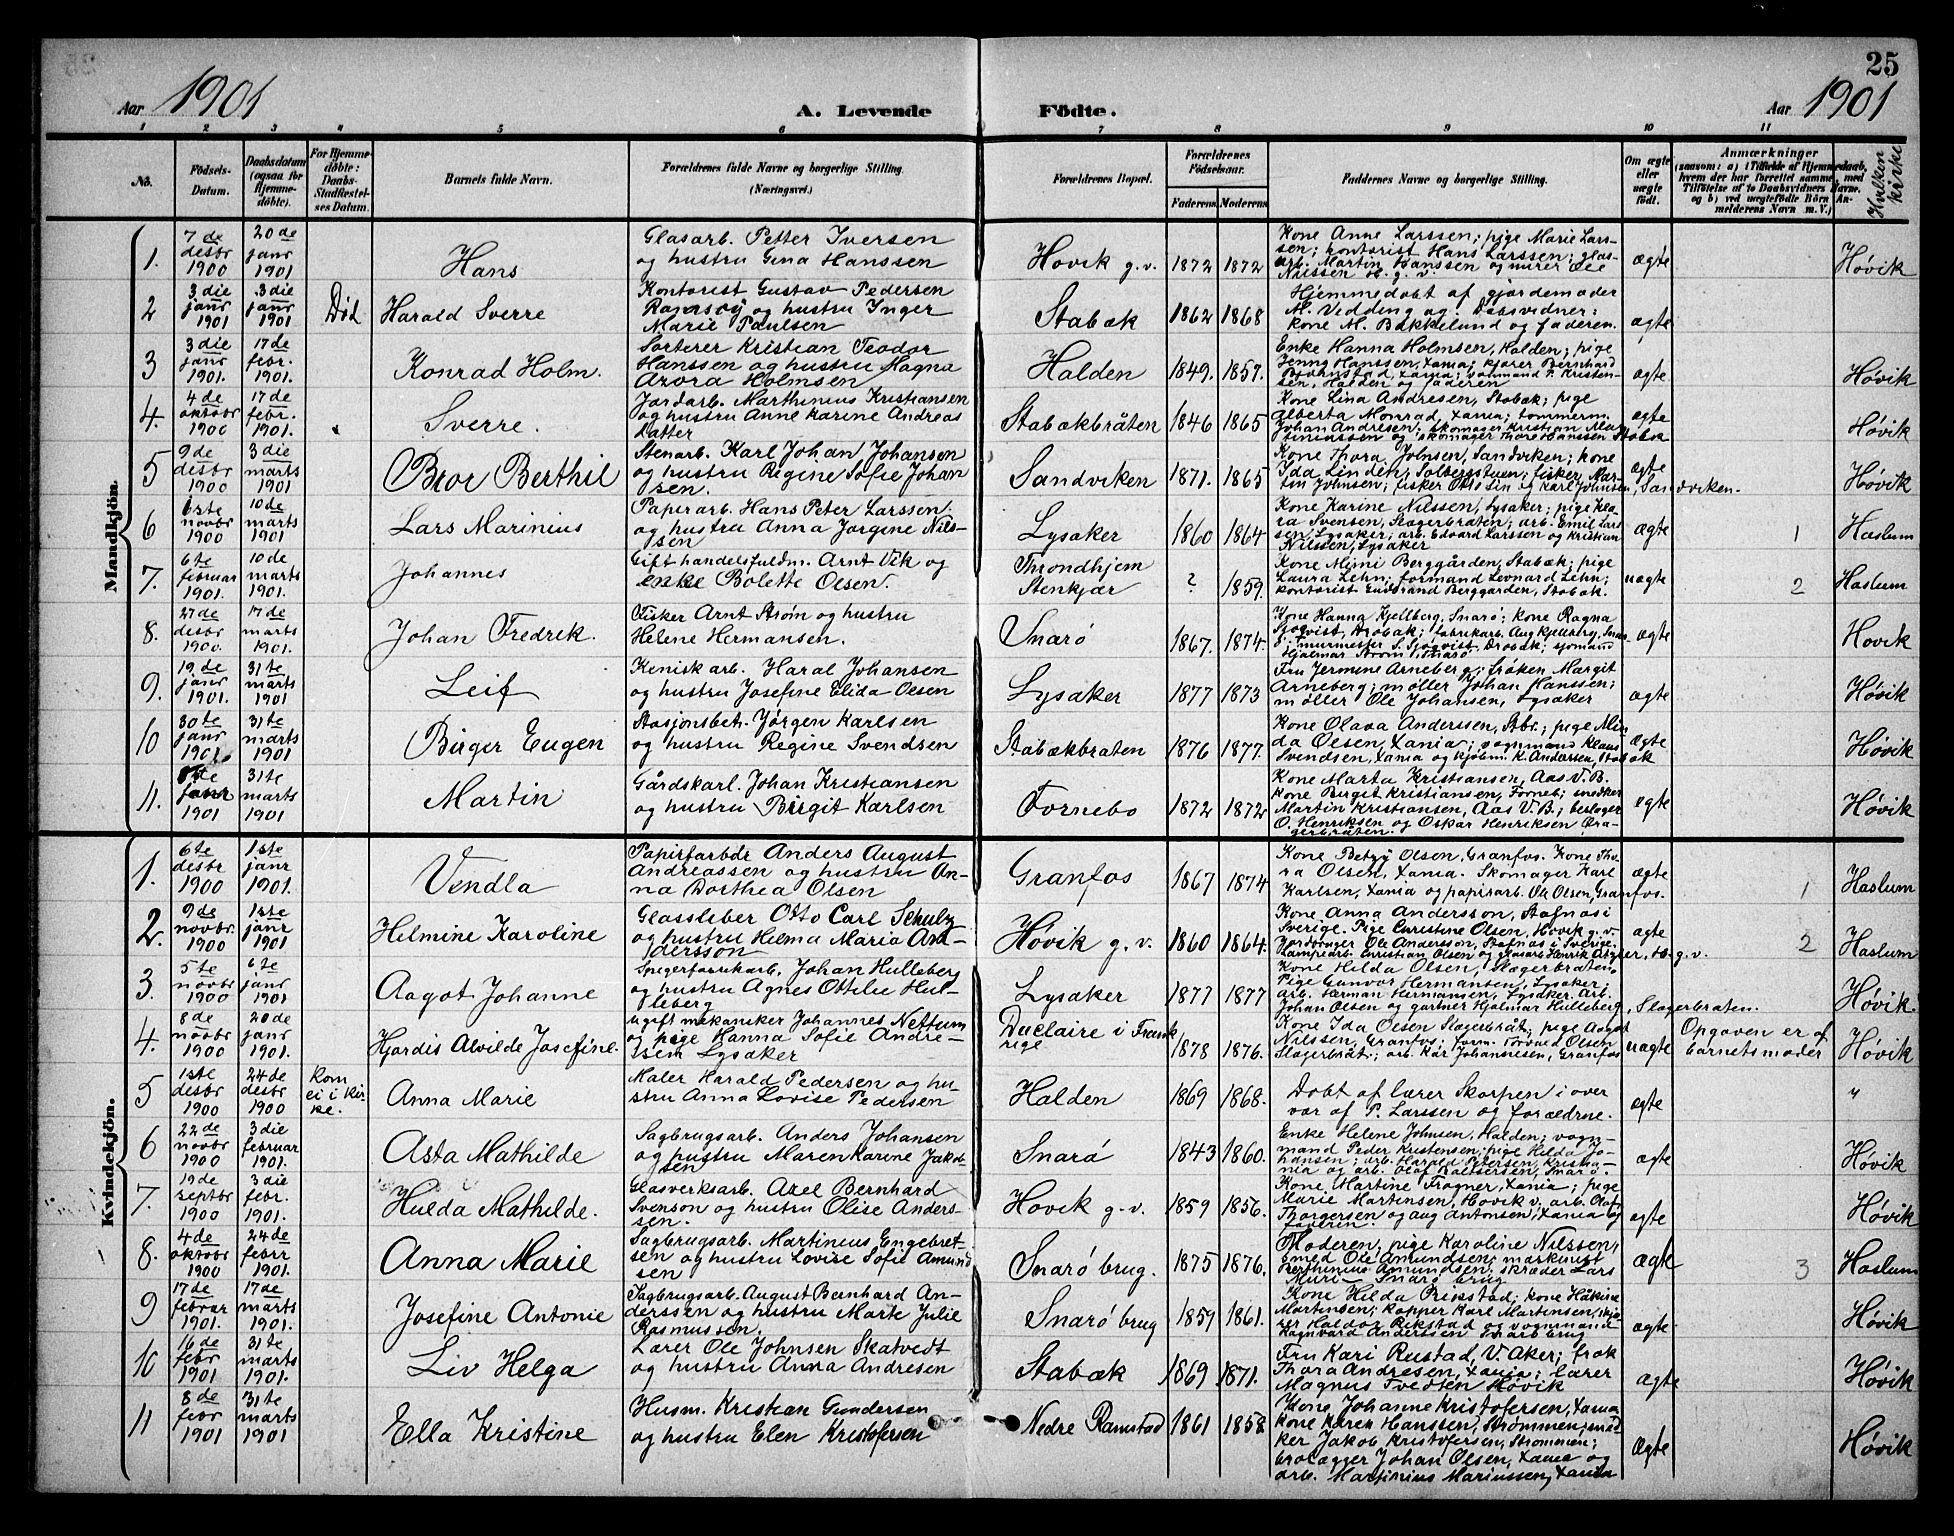 25
Aar 1901 A. Levende Födte. Aar 1901
1 2 3 4 5 6 7 8 9 10 11
No. Födsels-Datum. Daabsdatum (ogsaa for Hjemme-döbte). For Hjemme-döbte: Daabs-Stadfæstel-ses Datum. Barnets fulde Navn. Forældrenes fulde Navne og borgerlige Stilling. (Næringsvei.) Forældrenes Bopæl. Forældrenes Födselsaar. Faderens Moderens Faddernes Navne og borgerlige Stilling. Om ægte eller uægte födt. Anmærkninger (saasom: a) i Tilfælde af Hjemmedaab, hvem der har forrettet samme, med Tilföielse af to Daabsvidners Navne. og b) ved uægtefödte Börn An-melderens Navn m. V.) Hvilken kirke
Mandkjön.
1. 7de desbr 1900 20de janr 1901 Hans
Glasarb. Petter Iversen
og hustru Gina Hanssen
Høvik g.v. 1872 1872
Kone Anne Larssen; pige Marie Lars-
sen; kontorist Hans Larssen; glas-
arb. Martin Hanssen og murer Ole
Nilssen H. g. v.
ægte Høvik
2 3die janr 1901 3die janr 1901 Död Harald Sverre
Kontorist Gustav Pedersen
Ramsöy og hustru Inger
Marie Paulsen
Stabæk 1862 1868
Hjemmedöbt af gjordemoder
M. Vedding og. Dabsvidner:
kone M. Bakkelund og faderen.
ægte
3 3die janr 1901. 17de febr. 1901. Konrad Holm.
Sorterer Kristian Teodor
Hanssen og hustru Magna
Arora Holmsen
Halden 1849. 1857.
Enke Hanna Holmsen, Halden; pige
Jenny Hanssen, Xania; kjører Bernhard
vognmand P. Kristen-
sen, Halden og faderen
ægte Høvik
4. 4de oktobr 1900 17de febr. 1901. Sverre.
Jordarb. Marthinius Kristiansen
og hustru Anne Karine Andreas
datter
Stabækbråten 1846 1865
Kone Lina Andresen, Stabæk; pige
Alberta Monrad, Xania; tømmerm.
Johan Andresen, skomager Kristian Mar-
tiniussen og skomager Thore Hanssen Stabæk
ægte Høvik
5 9de desbr 1900 3die marts 1901 Bror Berthil
Stenarb. Karl Johan Johansen
og hustru Regine Sofie Johan
sen.
Sandviken 1871. 1865
Kone Thora Johnsen, Sandviken; kone
Ida Linden, Solbergstuen; fisker Mar-
tin Johnsen; fisker Otto Sin og Karl Johnsen, Sandviken.
ægte Høvik
6 1ste novbr 1900 10de marts 1901 Lars Marinius
Papirarb. Hans Peter Larssen
og hustru Anna Jørgine Nils-
sen
Lysaker 1860 1864
Kone Karine Nilssen, Lysaker; pige Kla-
ra Svensen, Slagerbråten; arb. Emil Lars
sen, Lysaker; arb. Edvard Larssen og Kristian
Nilssen, Lysaker
ægte 1 Haslum
7. 6te februar 1901. 10de marts 1901 Johannes
Gift handelsfuldm. Arnt Vik og
enke Bolette Olsen.
Throndhjem
Stenkjær ? 1859.
Kone Mimi Berggården, Stabæk; pige
Laura Lehn; formand Leonard Lehn;
kontorist Gudbrand Berggården, Stabæk.
uægte 2 Haslum
8. 27de desbr 1900. 17de marts 1901. Johan Fredrek.
Fisker Arnt Strøm og hustru
Helene Hermansen.
Snarø 1867. 1874.
Kone Hanna Kjellberg, Snarø; kone Ragna
Sjøqvist, Drøbak; fabrikarb. Aug Kjellberg, Snar-
ø; murmester S. Sjøqvist, Drøbak; sjømand
Hjalmar Strøm, Snarø
ægte Høvik
9. 19de janr 1901. 31te marts 1901 Leif
Kemisk arb. Haral Johansen
og hustru Josefine Elida Olsen
Lysaker 1877 1873
Fru Jermine Arneberg; frøken Margit
Arneberg; møller Johan Hanssen;
møller Ole Johansen, Lysaker
ægte Høvik
10 30te janr 1901 31te marts 1901 Birger Eugen
Stasjonsbet. Jörgen Karlsen
og hustru Regine Svendsen
Stabækbraten 1876 1877.
Kone Olava Anderssen, Stb.; pige Min
da Olsen, Xania; vognmand Klaus
Svendsen, Xania og kjøbm. K. Andersen, Stabæk
ægte Høvik
11. janr 1901 31te marts 1901 Martin
Gårdskarl. Johan Kristiansen
og hustru Birgit Karlsen
Fornebo 1872 1872
Kone Marta Kristiansen, Aas V.B.
Kone Birgit Kristiansen, Forneb; snedker
Martin Kristiansen, Aas V.B.;
O. Henriksen og Oskar Henriksen
ægte Høvik
Kvindekjön.
1. 6te desbr 1900 1ste janr 1901. Vendla
Papirfarbdr Anders August
Andreassen og hustru An-
na Dorthea Olsen
Granfos 1867 1874
Kone Betzy Olsen, Granfos. Kone Tho-
ra Olsen, Xania. Skomager Karl
Karlsen, Xania og papirarb. Ole Olsen, Granfos.
ægte 1 Haslum
2. 9de novbr. 1900 1ste janr 1901 Helmine Karoline
Glassleber Otto Carl Schulz
og hustru Helma Maria An-
dersson
Høvik g.v. 1860 1864.
Kone Anna Andersson, Stafnäs i
Sverige. Pige Christine Olsen, Høvik g.v.
Jordbruger Ole Andersson, Stafnäs i Sverige.
Lampearb. Christian Olsen og glasarb Henrik H. g. v.
ægte 2 Haslum
3. 5te novbr 1900 6te janr 1901 Aagot Johanne
Spigerfabrikarb. Johan Hulleberg
og hustru Agnes Ottilie Hul-
leberg
Lysaker 1877 1877
Kone Hilda Olsen, Slagerbraten,
Pige Gunvor Hermansen, Lysaker;
arb. Herman Hermansen, Lysaker. Arb.
Johan Olsen og gartner Hjalmar Hulleberg, Slagerbraten.
Høvik.
4. 8de novbr 1900 20de janr 1901 Hjordis Alvilde Josefine.
Ugift mekaniker Johannes Nettum
og pige Hanna Sofie Andre-
sen Lysaker
Duclaire i Frank
rige 1878 1876.
Kone Ida Olsen Slagerbråt; pige Aagot
Nilssen, Granfos; form. Torvald Olsen
Slagerbråt; arb. Kar Johannesen, Granfos
uægte Opgaven er af
barnets moder Høvik
5 1ste desbr 1900 24de desbr 1900 kom ei i kir-ke. Anna Marie
Maler Harald Pedersen og hu-
stru Anna Lovise Pedersen
Halden 1869 1868.
Døbt af lærer Skorpen i over
vær af P. Larssen og forældrne.
ægte "
6 22de novbr 1900 3die februar 1901. Asta Mathilde
Sagbrugsarb. Anders Johansen
og hustru Maren Karine Jakob-
sen
Snarö 1843 1860.
Enke Helene Johnsen, Halden; vogn-
mand Peder Kristensen; pige Hilda Jo-
hansen; arb. Harald Petersen, Kristia-
nia og arb. Olaf Snarø.
ægte Høvik
7. 19de septbr 1900 3die febr. 1901. Hulda Mathilde.
Glasverksarb. Axel Bernhard
Svenson og hustru Olise Anders-
sen.
Høvik g.v. 1859 1856.
Kone Martine Frogner, Xania; pige
Marie Martensen, Høvik v. arb. Olaf
Thorgersen og Aug Antonsen, Xania og
faderen.
ægte Høvik
8. 4de oktobr 1900 24de febr 1901. Anna Marie
Sagbrugsarb. Martinius Engebret-
sen og hustru Lovise Sofie Amund
sen
Snarø brug. 1875 1876.
Moderen, pige Karoline Nilssen,
smed Ole Amundsen; maskinist
Berthinius Amundsen; skræder Lars
Muri - Snarø brug
ægte 3 Haslum
9 17de februar 1901. 17de marts 1901. Josefine Antonie
Sagbrugsarb. August Bernhard An-
derssen og hustru Marte Julie
Rasmussen.
Snarö brug 1859 1861.
Kone Hilda Rikstad; kone Håkine
Martensen; kopper Karl Martensen,
Haldor Rikstad og vognmand
Ragnvard Anderssen Snarø brug
ægte Høvik
10 16de febr 1901 31te marts 1901. Liv Helga
Lærer Ole Johnsen Skatvedt
og hustru Anna Andresen
Stabæk 1869 1871.
Fru Kari Rustad, V. Aker; frøk
Thora Andresen, Xania; lærer
Magnus Tvedten Høvik
ægte Høvik
11 8de febr 1901 31te marts 1901 Ella Kristine
Husm. Kristian Gundersen
og hustru Elen Kristofersen
Nedre Ramstad 1861 1858
Kone Johanne Kristofersen, Xania,
kone Karen Hanssen, Strømmen; sned
ker Jakob Kristofersen, Strømmen;
brolægger Johan Olsen, Xania og
arb. Martinius Mariussen, Xania
ægte Høvik